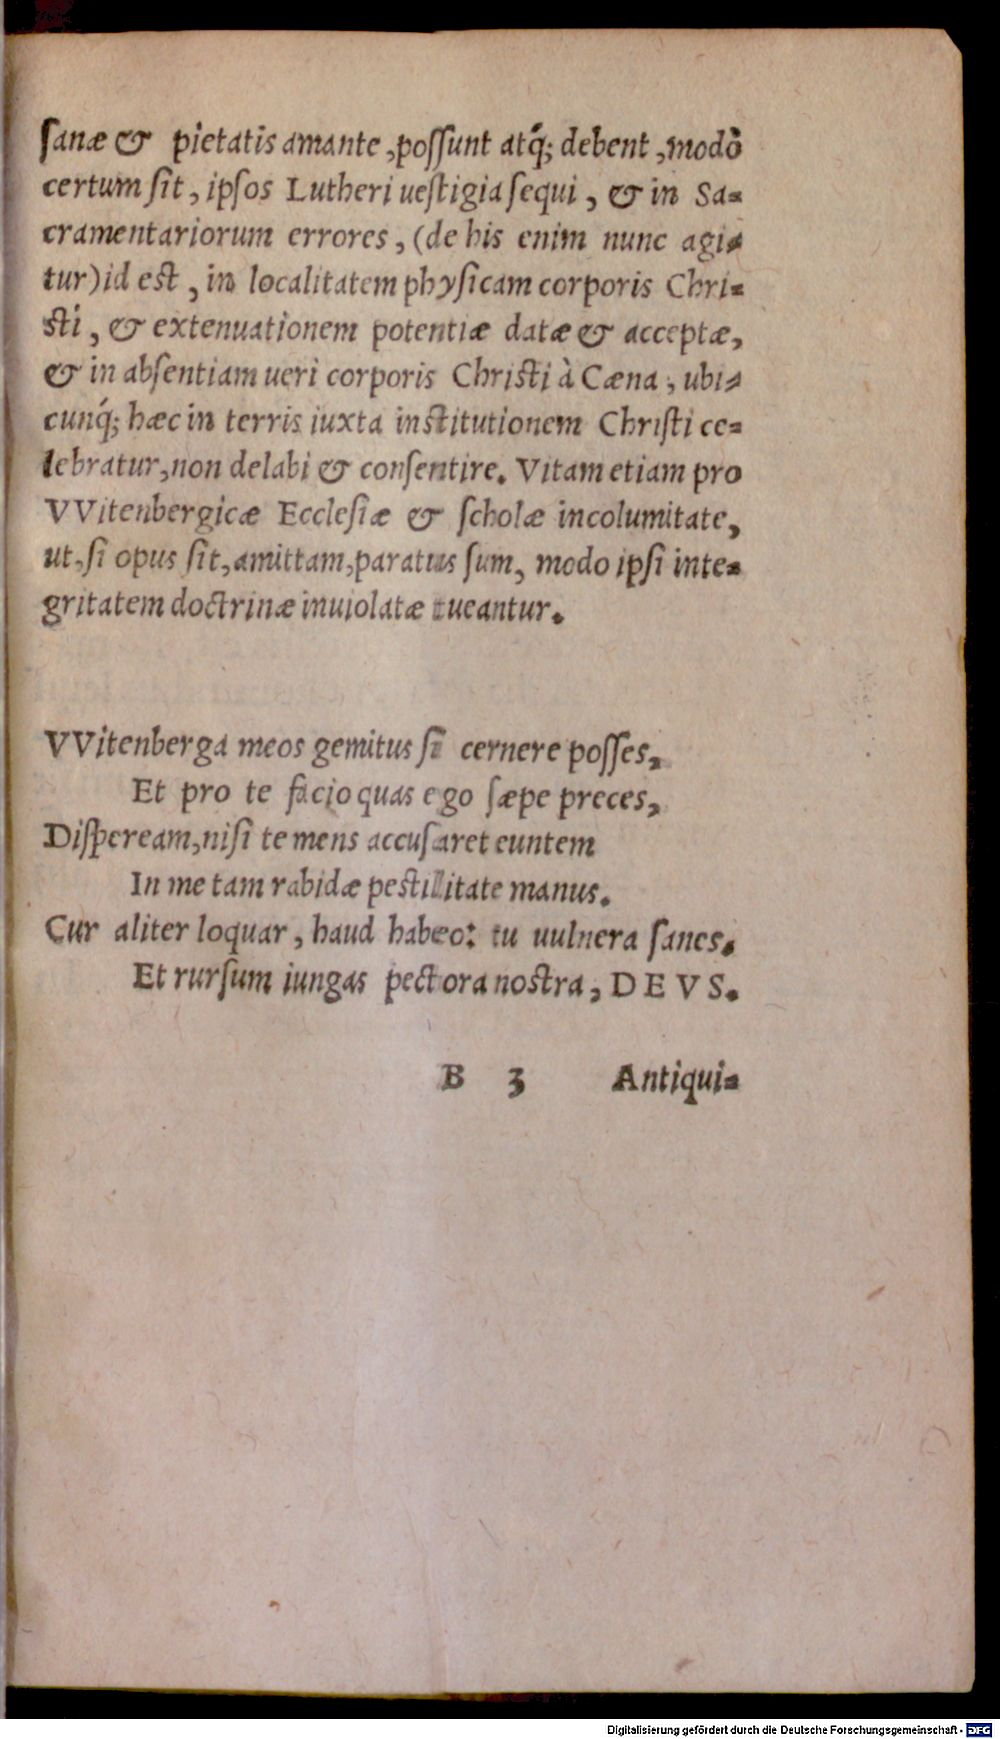 ſanæ & pietatis amante, poſſunt atq́; debent, modò
certum ſit, ipſos Lutheri ueſtigia ſequi, & in Sa-
cramentariorum errores, (de his enim nunc agi-
tur) id est, in localitatem phyſicam corporis Chri-
sti, & extenuationem potentiæ datæ & acceptæ,
& in abſentiam ueri corporis Christi à Cæna, ubi-
cunq́; hæc in terris iuxta institutionem Chriſti ce-
lebratur, non delabi & conſentire. Vitam etiam pro
VVitenbergicæ Eccleſiæ & ſcholæ incolumitate,
ut, ſi opus ſit, amittam, paratus ſum, modo ipſi inte-
gritatem doctrinæ inuiolatæ tueantur.
VVitenberga meos gemitus ſi cernere poſſes,
Et pro te facio quas ego ſæpe preces,
Diſpeream, niſi te mens accuſaret euntem
In me tam rabidæ pestilitate manus.
Cur aliter loquar, haud habeo: tu uulnera ſanes.
Et rurſum iungas pectora nostra, DEVS.
B 3 Antiqui-
Digitalisierung gefördert durch die Deutsche Forschungsgemeinschaft - DFG